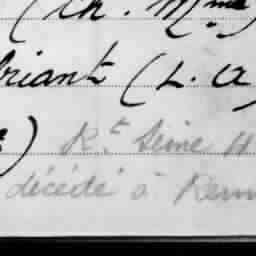 (Ch. Mme
briant (L. A
) Rt Seine H
décédé à Renn